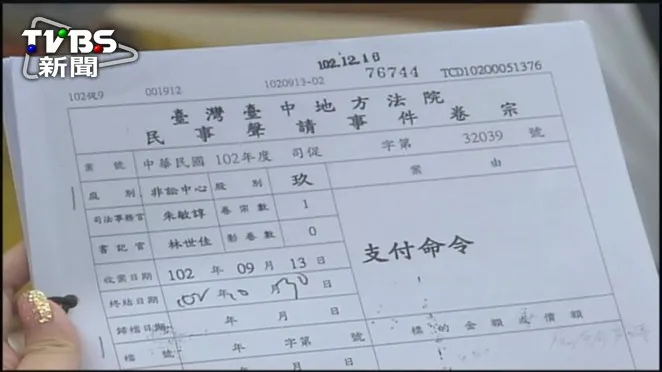 TVBS
新聞
102.12.16
102促9 001912 1020913-02 76744 TCD10200051376
臺灣臺中地方法院
民事聲請事件卷宗
案號 中華民國 102年度 司促 字第 32039 號
庭別 非訟中心 股別 玖 案由
司法事務官 朱敏諄 卷宗數 1
書記官 林世佳 影卷數 0
支付命令
收案日期 102 年 09 月 13 日
終結日期 102 年 10 月 30 日
歸檔日期 年 月 日
檔號 年 字第 號 標的金額或價額
年 月 日